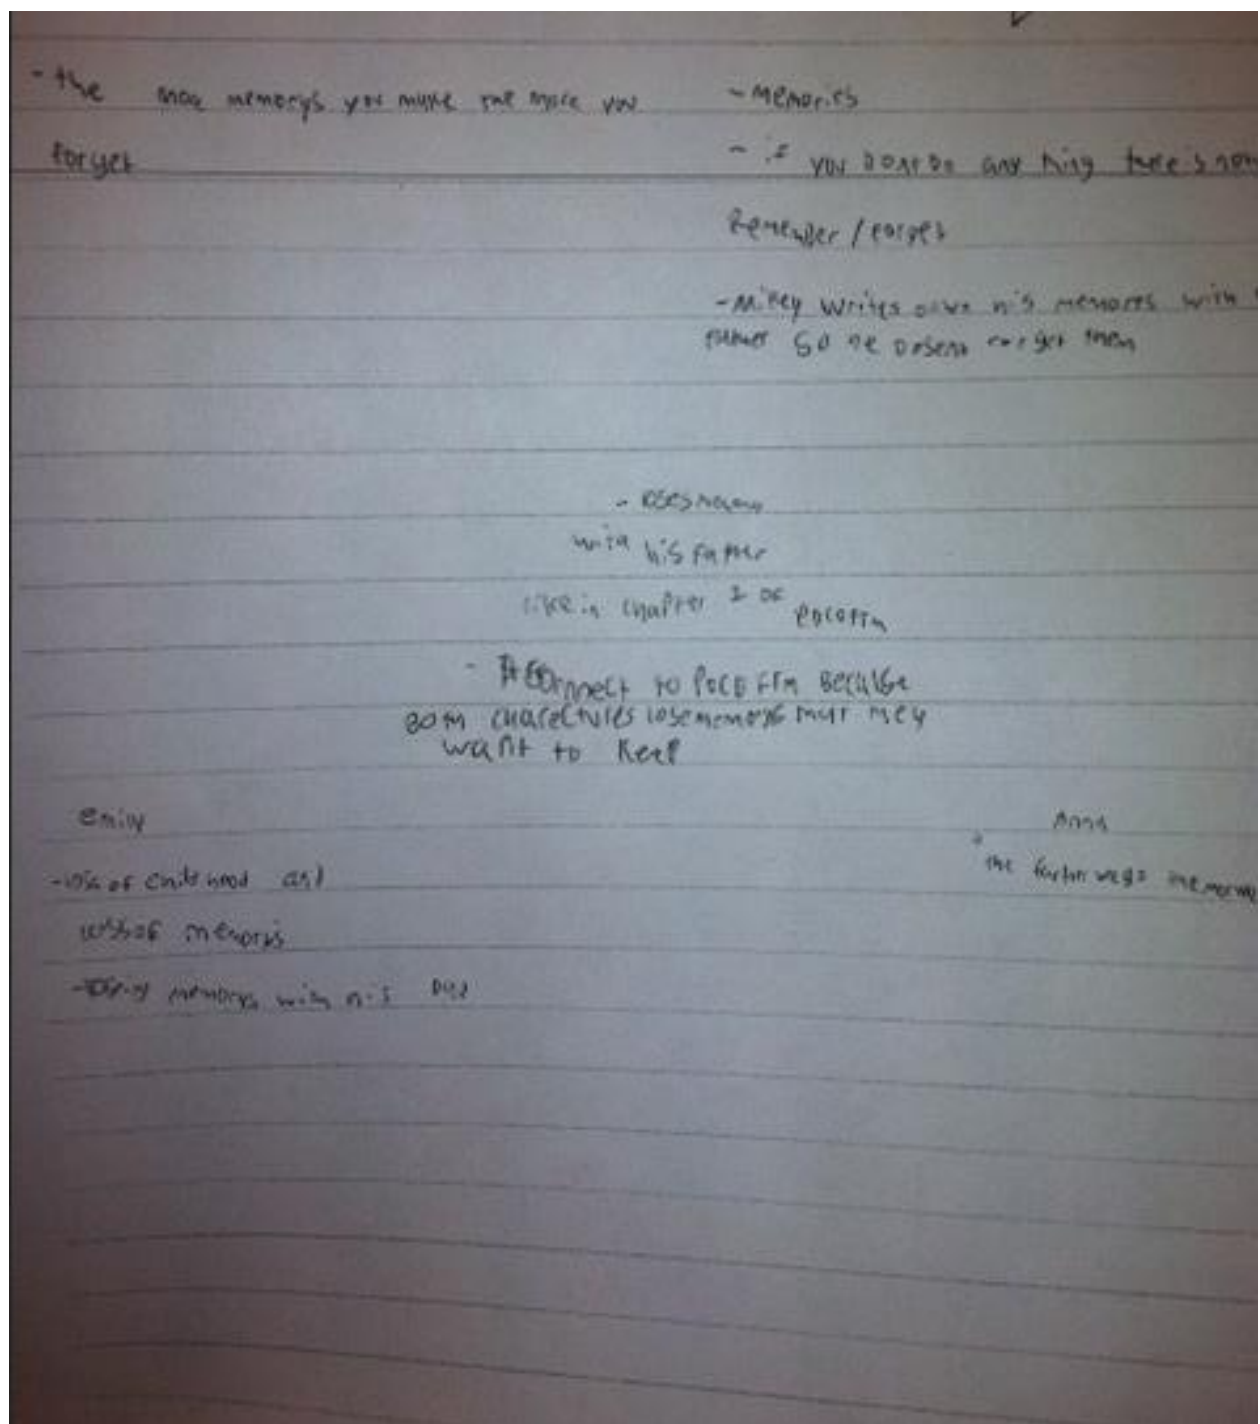 - the more memorys you make the more you
forget
- memories
- if you dont do any thing there's
Remember / forget
- Mikey writes down his memores with
father so he dosent forget them
- loses
with his father
like in chapter 1 of
- connect to because
Both charectures lose memorys that they
want to keep
emily
- loss of child hood and
loss of memorys
memorys with his Dad
Anna
the